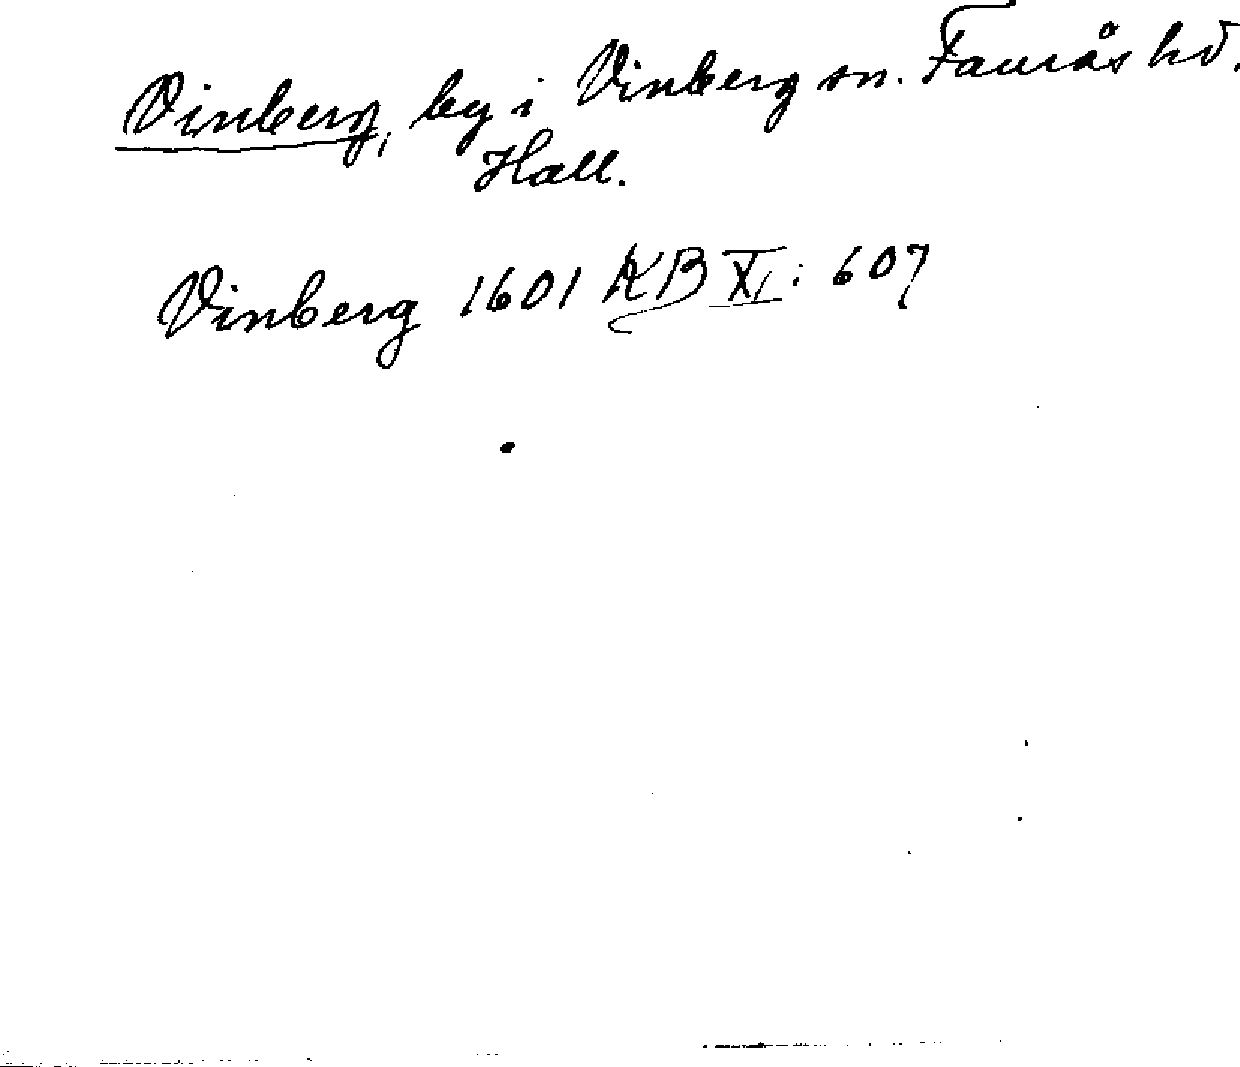 Vinberg, by i Vinberg sn. Faurås hd.
Hall.
Vinberg 1601 KB XI: 607